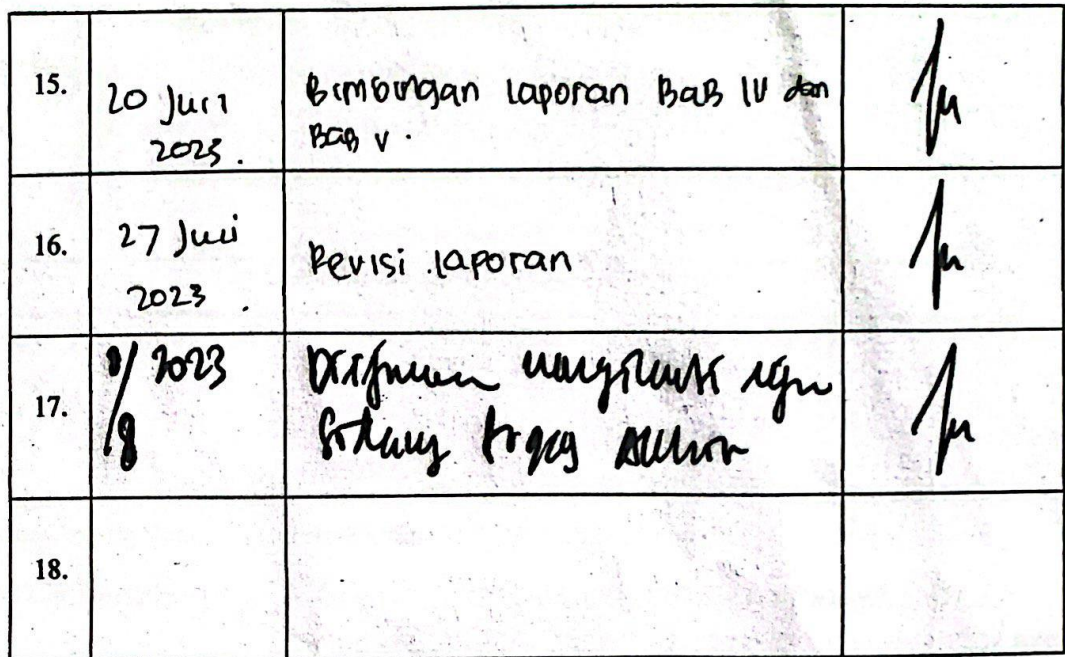 15.
20 Juli
2023.
Bimbingan laporan BAB IV dan
BAB V.
16.
27 Juli
2023.
Revisi laporan
17.
/ 2023
/8
mengikuti ujian
Sidang tugas
18.